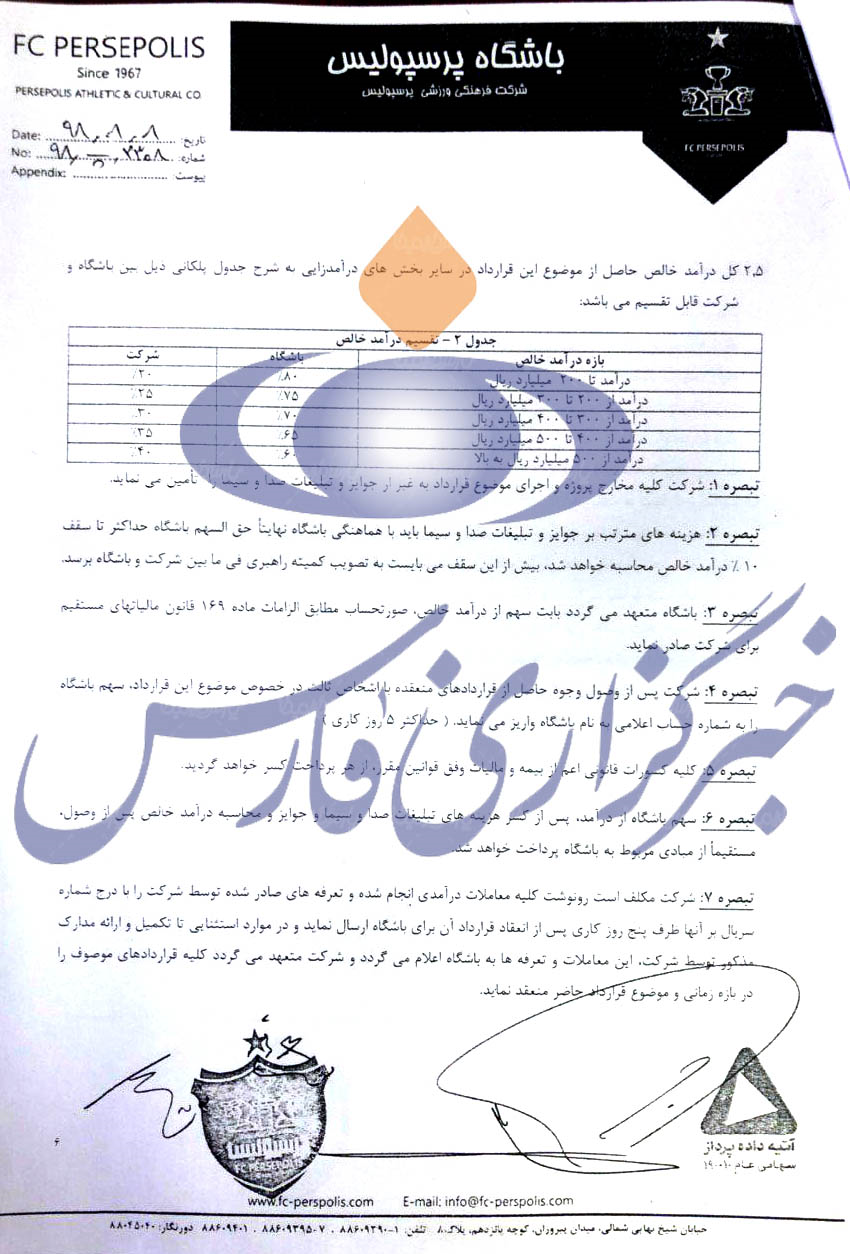 FC PERSEPOLIS
Since 1967
PERSEPOLIS ATHLETIC & CULTURAL CO.
باشگاه پرسپولیس
شرکت فرهنگی ورزشی پرسپولیس
FC PERSEPOLIS
Date: ۹۸،۰۸،۰۸ تاریخ:
No: شماره:
Appendix: پیوست:
۲،۵ کل درآمد خالص حاصل از موضوع این قرارداد در سایر بخش های درآمدزایی به شرح جدول پلکانی ذیل بین باشگاه و
شرکت قابل تقسیم می باشد:
جدول ۲ – تقسیم درآمد خالص
بازه درآمد خالص باشگاه شرکت
درآمد تا ۲۰۰ میلیارد ریال ٪۸۰ ٪۲۰
درآمد از ۲۰۰ تا ۳۰۰ میلیارد ریال ٪۷۵ ٪۲۵
درآمد از ۳۰۰ تا ۴۰۰ میلیارد ریال ٪۷۰ ٪۳۰
درآمد از ۴۰۰ تا ۵۰۰ میلیارد ریال ٪۶۵ ٪۳۵
درآمد از ۵۰۰ میلیارد ریال به بالا ٪۶۰ ٪۴۰
تبصره ۱: شرکت کلیه مخارج پروژه و اجرای موضوع قرارداد به غیر از جوایز و تبلیغات صدا و سیما را تأمین می نماید.
تبصره ۲: هزینه های مترتب بر جوایز و تبلیغات صدا و سیما باید با هماهنگی باشگاه نهایتاً حق السهم باشگاه حداکثر تا سقف
۱۰ ٪ درآمد خالص محاسبه خواهد شد، بیش از این سقف می بایست به تصویب کمیته راهبری فی ما بین شرکت و باشگاه برسد.
تبصره ۳: باشگاه متعهد می گردد بابت سهم از درآمد خالص، صورتحساب مطابق الزامات ماده ۱۶۹ قانون مالیاتهای مستقیم
برای شرکت صادر نماید.
تبصره ۴: شرکت پس از وصول وجوه حاصل از قراردادهای منعقده با اشخاص ثالث در خصوص موضوع این قرارداد، سهم باشگاه
را به شماره حساب اعلامی به نام باشگاه واریز می نماید. ( حداکثر ۵ روز کاری )
تبصره ۵: کلیه کسورات قانونی اعم از بیمه و مالیات وفق قوانین مقرر، از هر پرداخت کسر خواهد گردید.
تبصره ۶: سهم باشگاه از درآمد، پس از کسر هزینه های تبلیغات صدا و سیما و جوایز و محاسبه درآمد خالص پس از وصول،
مستقیماً از مبادی مربوط به باشگاه پرداخت خواهد شد.
خبرگزاری فارس
تبصره ۷: شرکت مکلف است رونوشت کلیه معاملات درآمدی انجام شده و تعرفه های صادر شده توسط شرکت را با درج شماره
سریال بر آنها ظرف پنج روز کاری پس از انعقاد قرارداد آن برای باشگاه ارسال نماید و در موارد استثنایی تا تکمیل و ارائه مدارک
مذکور توسط شرکت، این معاملات و تعرفه ها به باشگاه اعلام می گردد و شرکت متعهد می گردد کلیه قراردادهای موصوف را
در بازه زمانی و موضوع قرارداد حاضر منعقد نماید.
FC PERSEPOLIS
آتیه داده پرداز
سهامی عام
۶
www.fc-perspolis.com E-mail: info@fc-perspolis.com
خیابان شیخ بهایی شمالی، میدان پیروزان، کوچه پانزدهم، پلاک ۸ تلفن: ۱-۸۸۶۰۹۳۹۰ ، ۷-۸۸۶۰۹۳۹۵ ، ۸۸۶۰۹۴۰۱ دورنگار: ۸۸۰۴۵۰۴۰